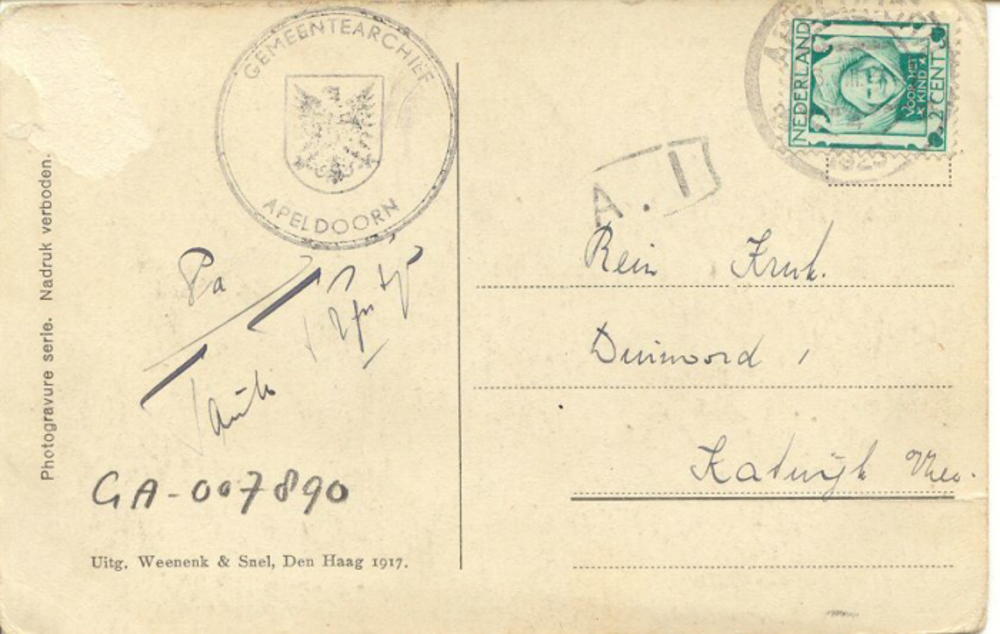 Photogravure serie. Nadruk verboden.
GEMEENTEARCHIEF
APELDOORN
Pa
GA-007890
Uitg. Weenenk & Snel, Den Haag 1917.
NEDERLAND
VOOR HET
KIND
2 CENT
A.1
Rein Kruk.
Duinoord 1
Katwijk